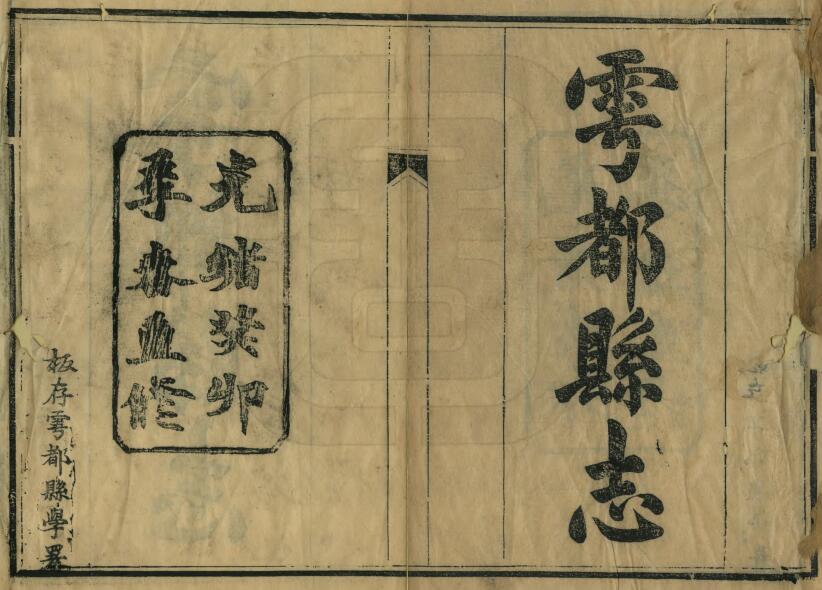 雩都縣志
光緒癸卯
年修
板存雩都縣學署